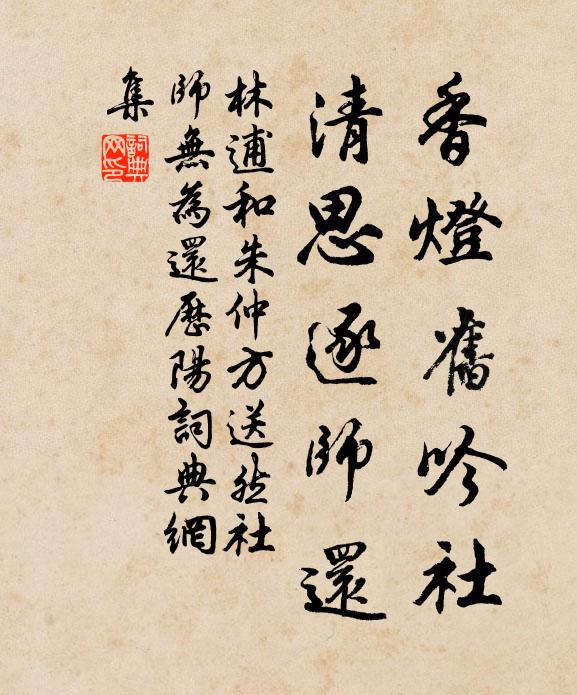 香燈舊吟社
清思逐師還
林逋和朱仲方送然社
師無為還歷陽詞典網
集
詞典网印